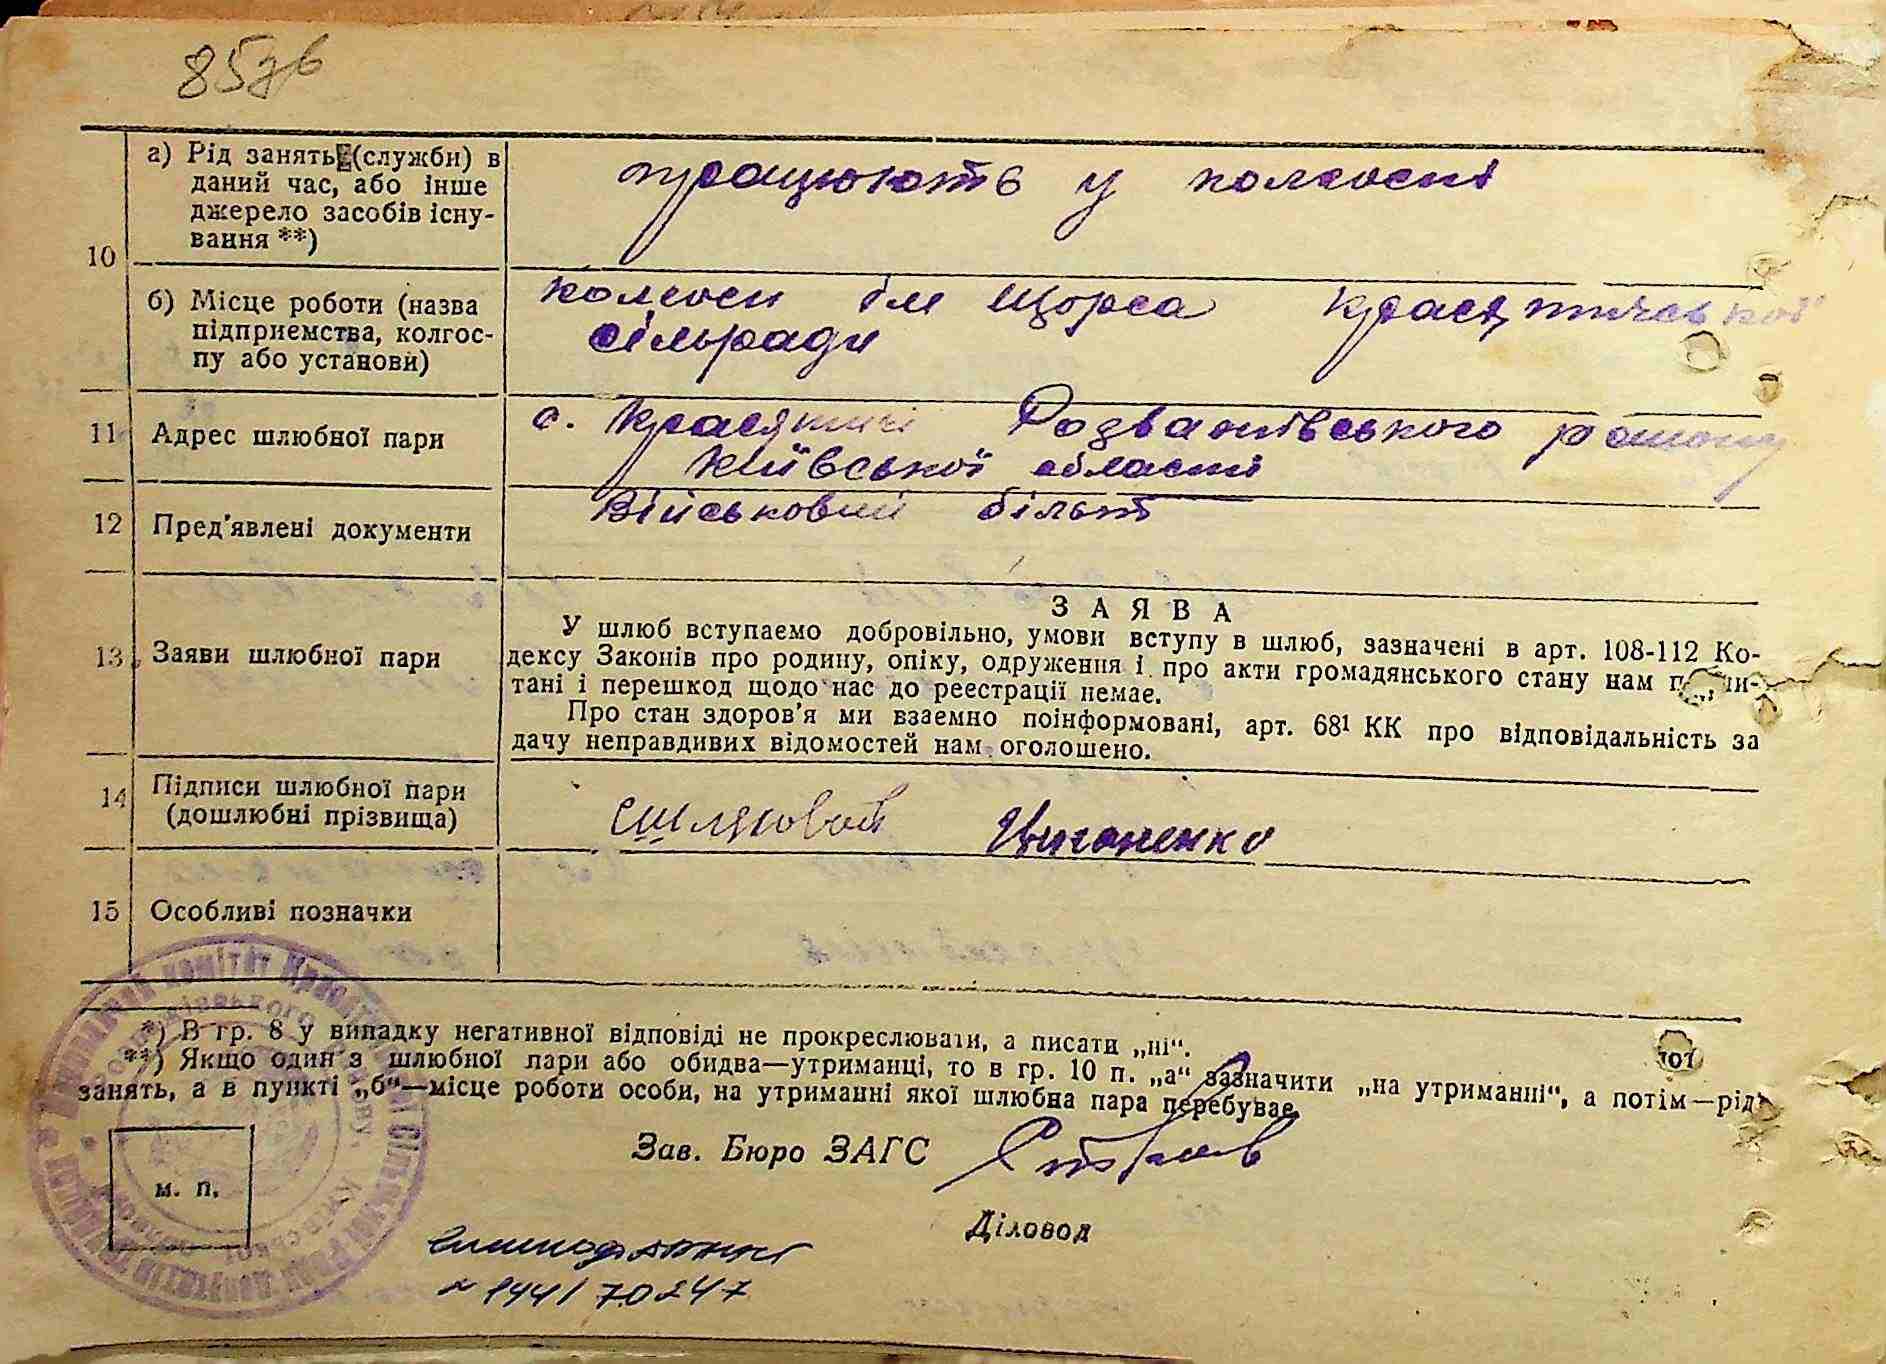 85зв
10
а) Рід занять (служби) в
даний час, або інше
джерело засобів існу-
вання **)
працюють у колгоспі
б) Місце роботи (назва
підприємства, колгос-
пу або установи)
колгосп ім Щорса Красятичської
сільради
11 Адрес шлюбної пари
с. Красятичі Розважівського району
Київської області
12 Пред'явлені документи
Військовий білет
13 Заяви шлюбної пари
ЗАЯВА
У шлюб вступаємо добровільно, умови вступу в шлюб, зазначені в арт. 108-112 Ко-
дексу Законів про родину, опіку, одруження і про акти громадянського стану нам
тані і перешкод щодо нас до реєстрації немає.
Про стан здоров'я ми взаємно поінформовані, арт. 68¹ КК про відповідальність за
дачу неправдивих відомостей нам оголошено.
14 Підписи шлюбної пари
(дошлюбні прізвища)
Цигоненко
15 Особливі позначки
*) В гр. 8 у випадку негативної відповіді не прокреслювати, а писати „ні“.
**) Якщо один з шлюбної пари або обидва—утриманці, то в гр. 10 п. „а“ зазначити „на утриманні“, а потім—рід
занять, а в пункті „б“—місце роботи особи, на утриманні якої шлюбна пара перебуває.
Зав. Бюро ЗАГС
м. п.
Діловод